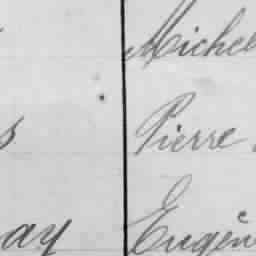 Michel
s Pierre
ay Eugèn